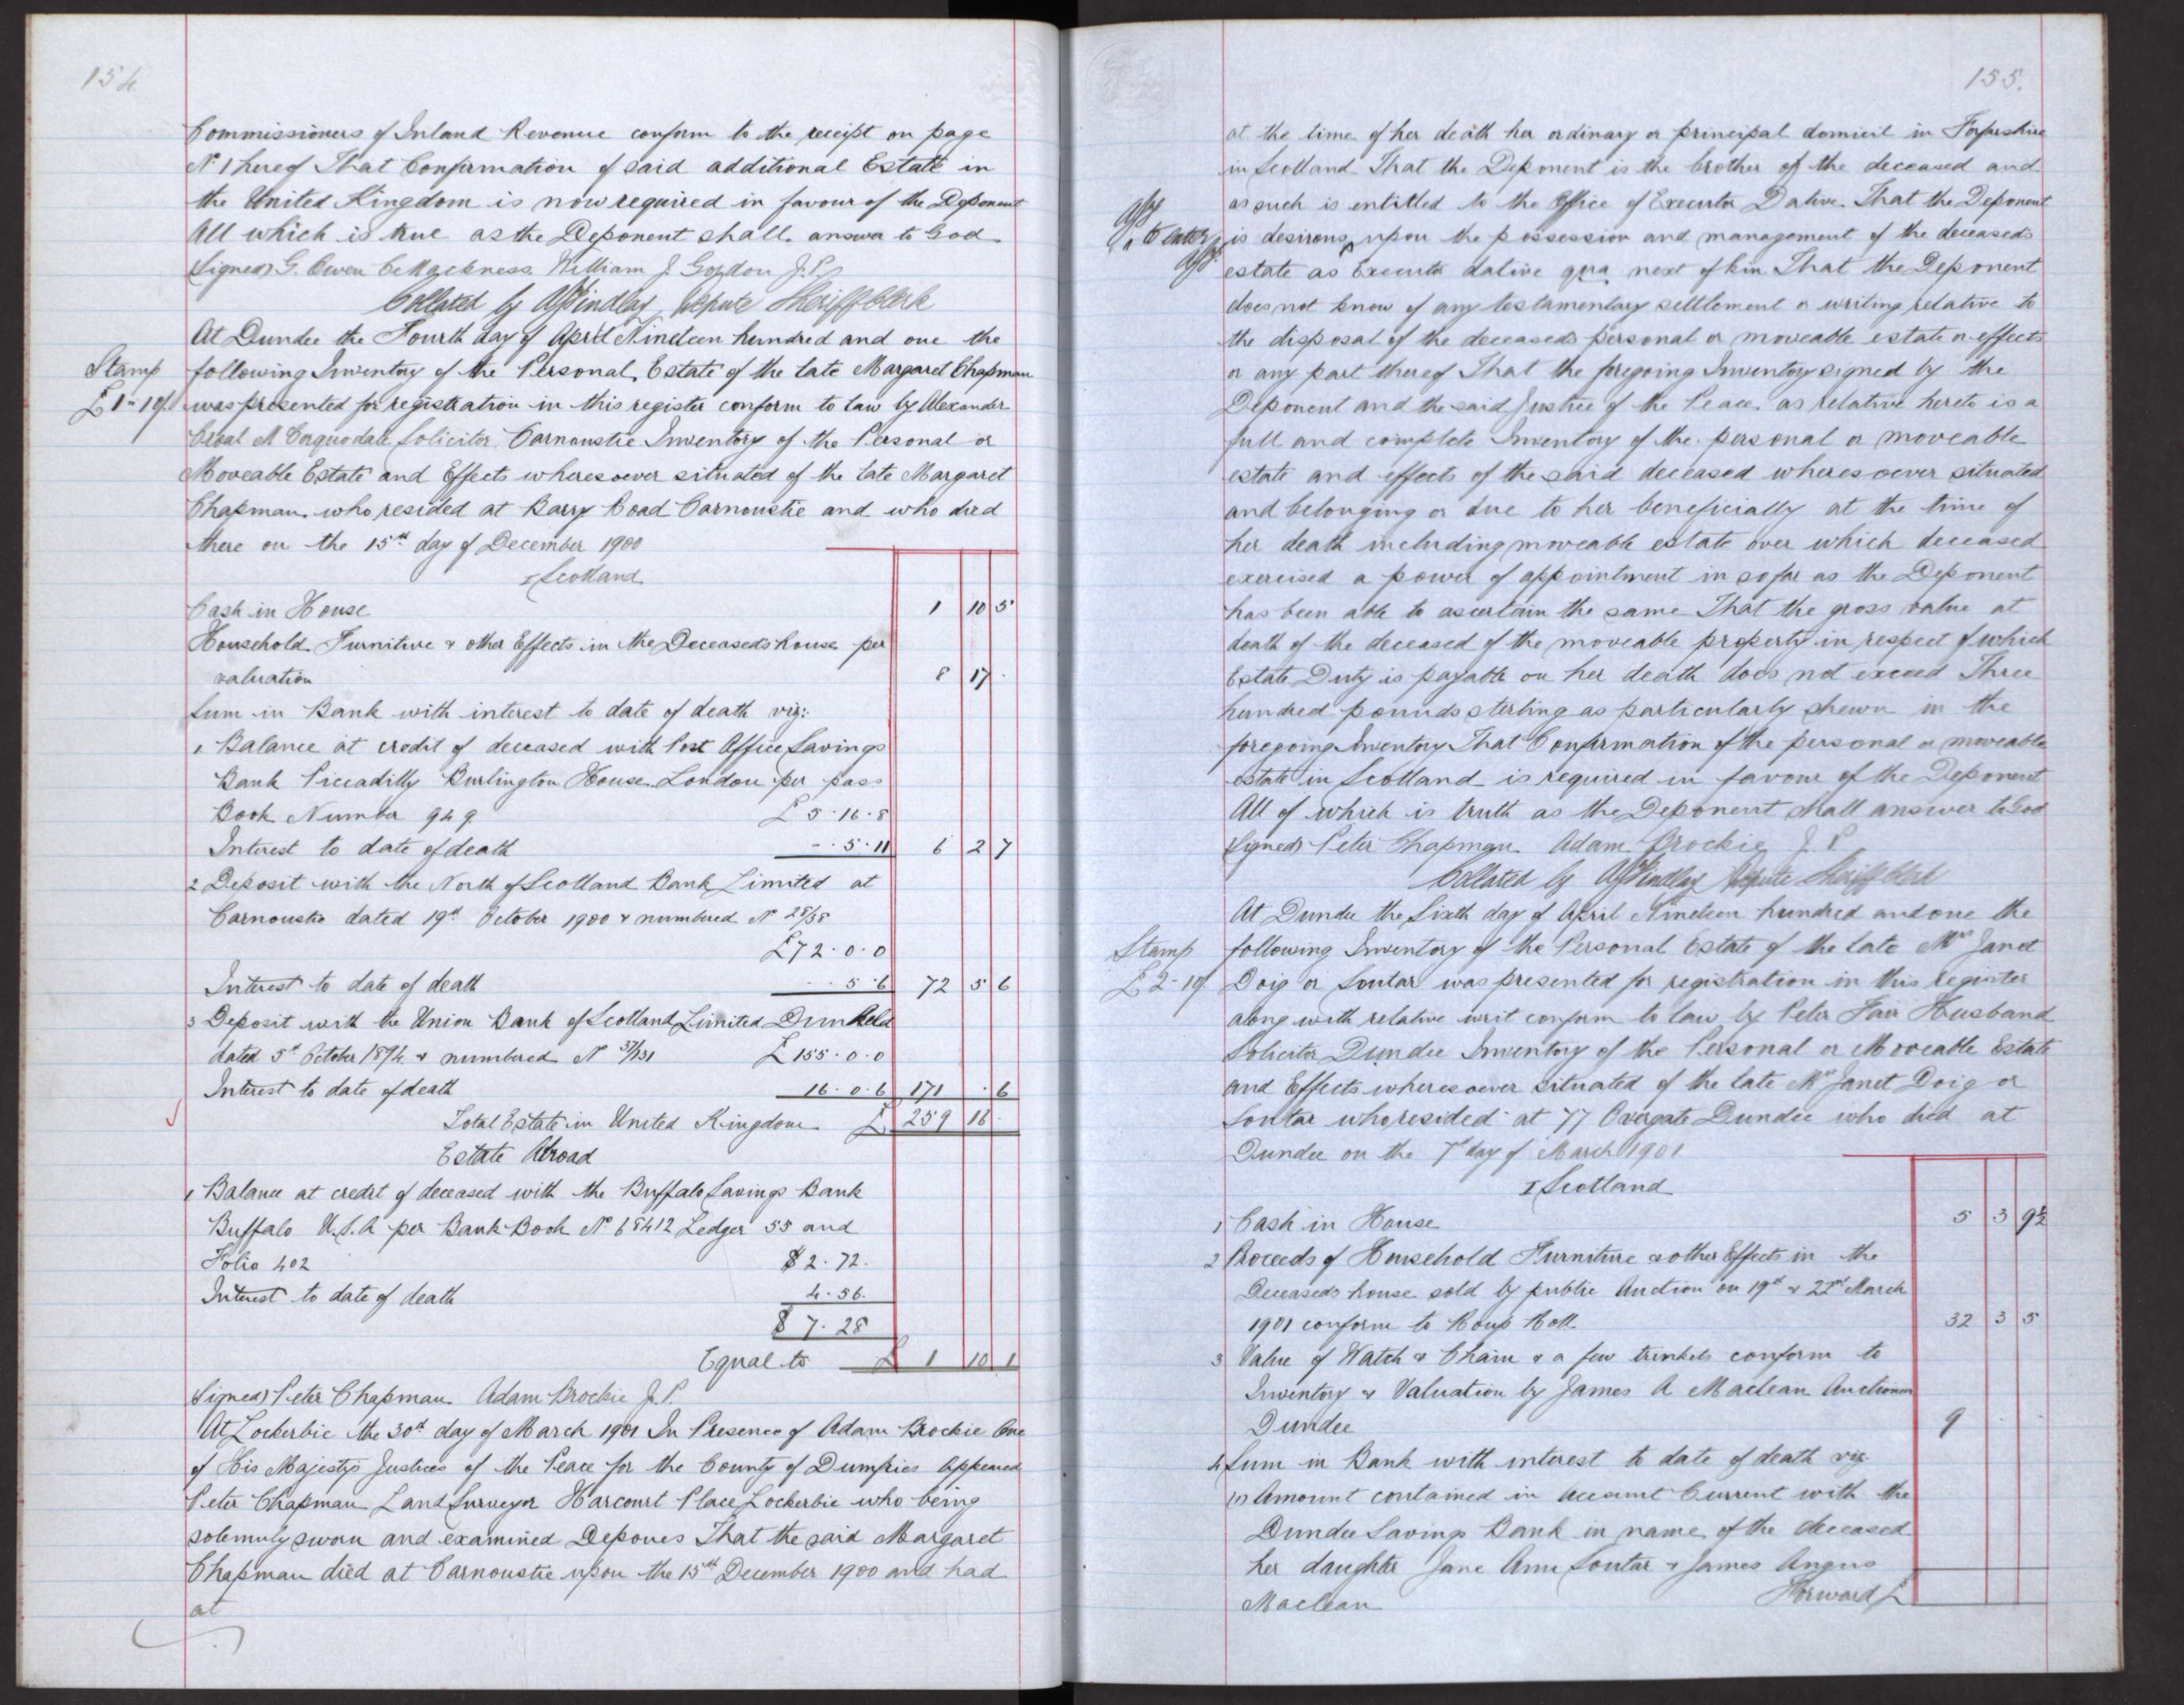 154.
Commissioners of Inland Revenue conform to the receipt on page
No 1 hereof That Confirmation of said additional Estate in
the United Kingdom is now required in favour of the Deponent
All which is true as the Deponent shall answer to God
Signed G. Owen William J. Gordon J.P.
Collated by Depute Sheriff Clerk
At Dundee the Fourth day of April Nineteen hundred and one the
Stamp following Inventory of the Personal Estate of the late Margaret Chapman
£1-10/ was presented for registration in this register conform to law by Alexander
McCorquodale Solicitor Carnoustie Inventory of the Personal or
Moveable Estate and Effects wheresoever situated of the late Margaret
Chapman who resided at Barry Road Carnoustie and who died
there on the 15th day of December 1900
I Scotland
Cash in House 1 10 5
Household Furniture & other Effects in the Deceased's house per
valuation 8 17 .
Sum in Bank with interest to date of death viz:-
1 Balance at credit of deceased with Post Office Savings
Bank Piccadilly Burlington House London per pass
Book Number 949 £5.16.8
Interest to date of death -.5.11 6 2 7
2 Deposit with the North of Scotland Bank Limited at
Carnoustie dated 19th October 1900 & numbered No 28/38
£72.0.0
Interest to date of death -.5.6 72 5 6
3 Deposit with the Union Bank of Scotland Limited Dunkeld
dated 5th October 1894 & numbered No 37/131 £155.0.0
Interest to date of death 16.0.6 171 . 6
Total Estate in United Kingdom £ 259 16 .
Estate Abroad
1 Balance at credit of deceased with the Buffalo Savings Bank
Buffalo U.S.A per Bank Book No 68412 Ledger 55 and
Folio 402 $2.72.
Interest to date of death 4.56.
$7.28
Equal to £ 1 10 1
Signed Peter Chapman Adam Brockie J.P.
At Lockerbie the 30th day of March 1901 In Presence of Adam Brockie One
of His Majesty's Justices of the Peace for the County of Dumfries Appeared
Peter Chapman Land Surveyor Harcourt Place Lockerbie who being
solemnly sworn and examined Depones That the said Margaret
Chapman died at Carnoustie upon the 15th December 1900 and had
at
155.
at the time of her death her ordinary or principal domicil in Forfarshire
in Scotland That the Deponent is the brother of the deceased and
as such is entitled to the Office of Executor Dative. That the Deponent
to enter is desirous upon the possession and management of the deceased's
estate as Executor dative qua next of kin That the Deponent
does not know of any testamentary settlement or writing relative to
the disposal of the deceased's personal or moveable estate or effects
or any part thereof That the foregoing Inventory signed by the
Deponent and the said Justice of the Peace. as relative hereto is a
full and complete Inventory of the personal or moveable
estate and effects of the said deceased wheresoever situated
and belonging or due to her beneficially at the time of
her death including moveable estate over which deceased
exercised a power of appointment in so far as the Deponent
has been able to ascertain the same That the gross value at
death of the deceased of the moveable property in respect of which
Estate Duty is payable on her death does not exceed Three
hundred pounds sterling as particularly shewn in the
foregoing Inventory That Confirmation of the personal or moveable
estate in Scotland is required in favour of the Deponent
All of which is truth as the Deponent shall answer to God
Signed Peter Chapman Adam Brockie J.P
Collated by Depute Sheriff Clerk
At Dundee the Sixth day of April Nineteen hundred and one the
Stamp following Inventory of the Personal Estate of the late Mrs Janet
£2-10/ Doig or Soutar was presented for registration in this register
along with relative writ conform to law by Peter Fair Husband
Solicitor Dundee Inventory of the Personal or Moveable Estate
and Effects wheresoever situated of the late Mrs Janet Doig or
Soutar who resided at 77 Overgate Dundee who died at
Dundee on the 7th day of March 1901
I Scotland
1 Cash in House 5 3 9½
2 Proceeds of Household Furniture & other Effects in the
Deceased's house sold by public Auction on 19th & 22nd March
1901 conform to Roup Roll 32 3 5
3 Value of Watch & Chain & a few trinkets conform to
Inventory & Valuation by James A Maclean Auctioneer
Dundee 9 . .
4 Sum in Bank with interest to date of death viz.
(1) Amount contained in Account Current with the
Dundee Savings Bank in name of the deceased
her daughter Jane Ann Soutar & James Angus
Maclean Forward £